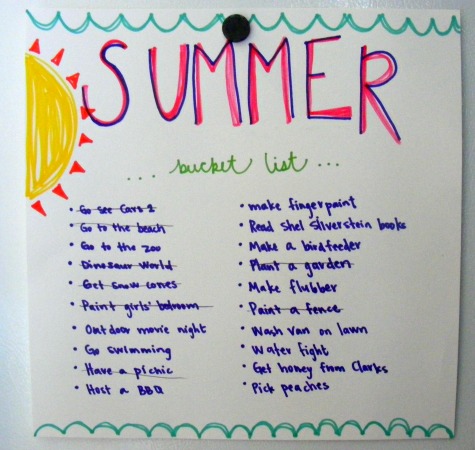 SUMMER
... bucket list ...
• Go see Cars 2
• Go to the beach
• Go to the zoo
• Dinosaur World
• Get snow cones
• Paint girls' bedroom
• Outdoor movie night
• Go swimming
• Have a picnic
• Host a BBQ
• make fingerpaint
• Read Shel Silverstein books
• Make a birdfeeder
• Plant a garden
• Make flubber
• Paint a fence
• Wash van on lawn
• Water fight
• Get honey from Clarks
• Pick peaches